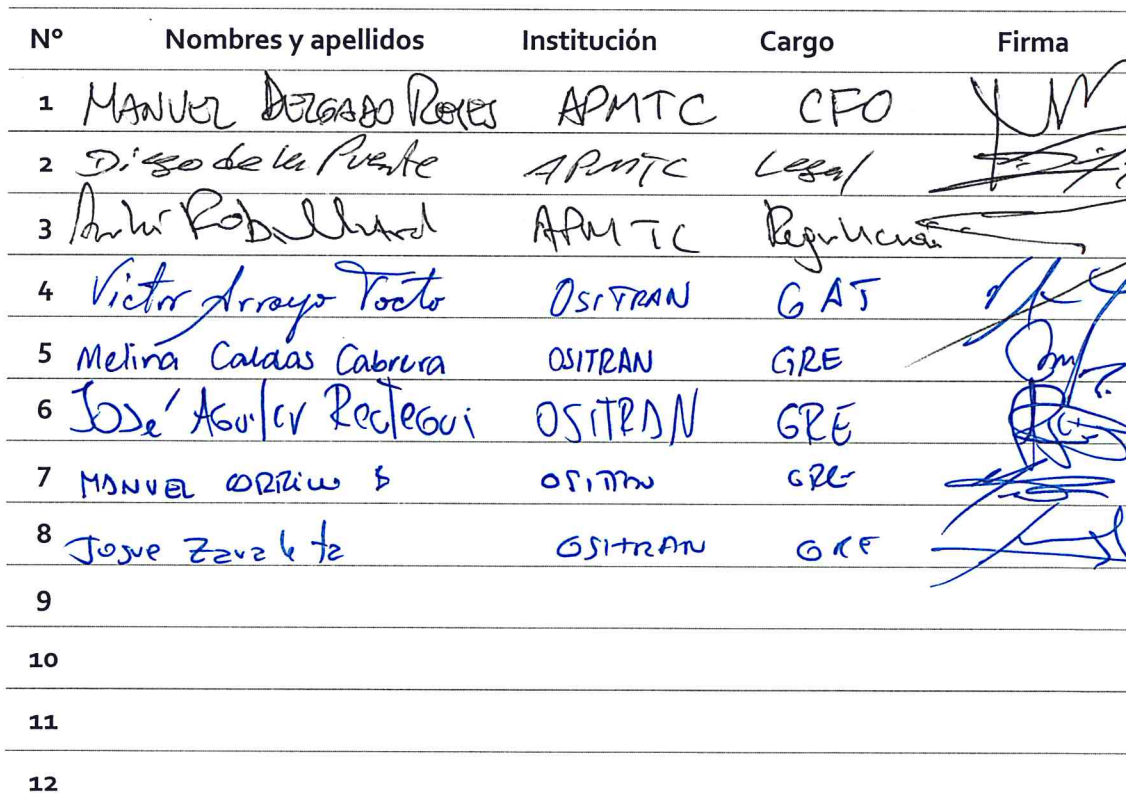 N° Nombres y apellidos Institución Cargo Firma
1 MANUEL DELGADO REYES APMTC CFO
2 Diego de la Puente APMTC Legal
3 APMTC Regulación
4 Victor Arroyo Tocto OSITRAN GAT
5 Melina Caldas Cabrera OSITRAN GRE
6 José Aguilar Reátegui OSITRAN GRE
7 MANUEL CARRILLO B OSITRAN GRE
8 Josue Zavaleta OSITRAN GRE
9
10
11
12